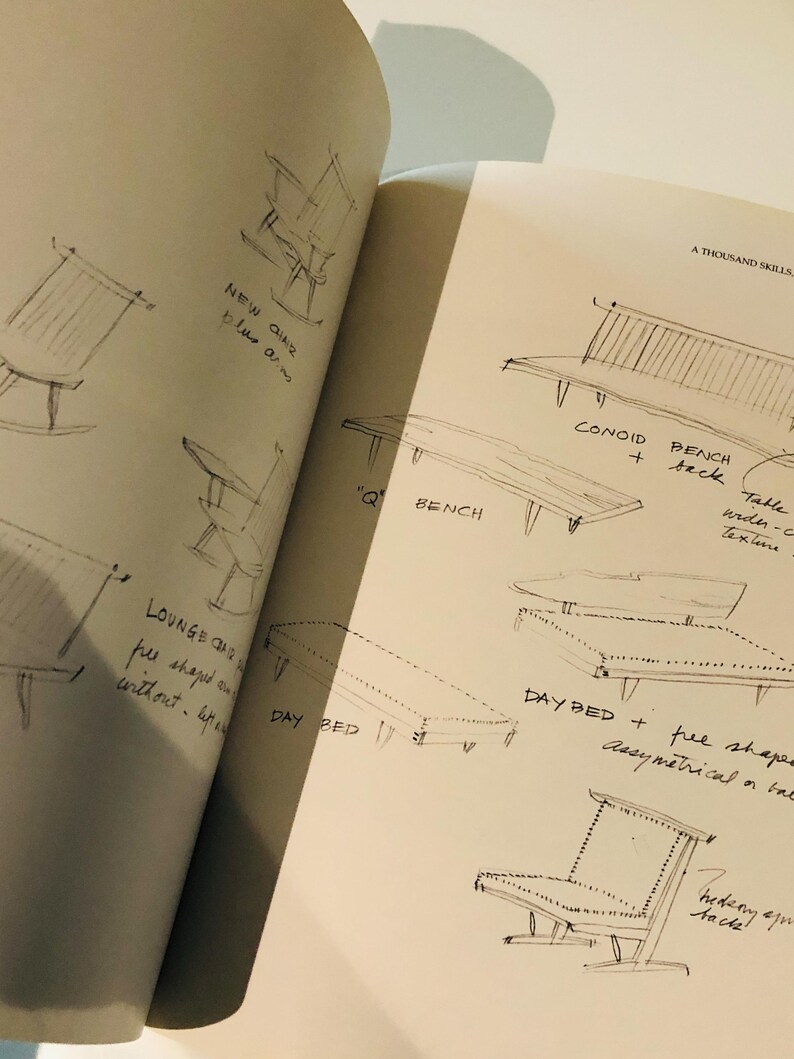 NEW CHAIR
plus arms
LOUNGE CHAIR
free shaped arm
without - left
A THOUSAND SKILLS,
CONOID BENCH
+ back
Table
wider -
texture
"Q" BENCH
DAY BED
DAY BED + free shaped
assymetrical or
hickory
back